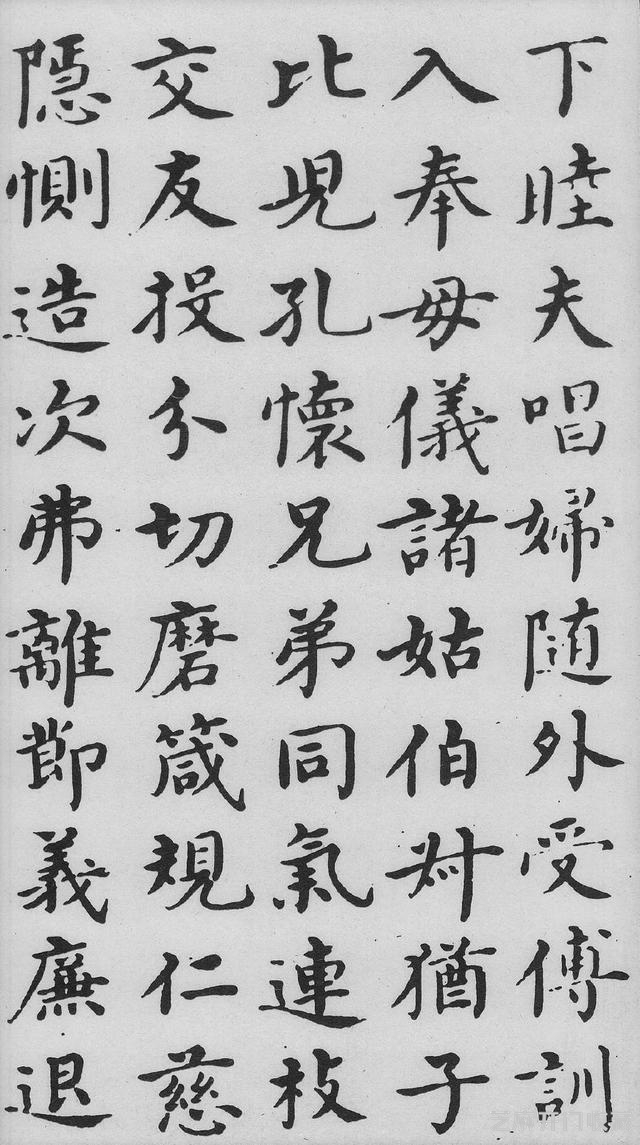 下睦夫唱婦随外受傅訓
入奉母儀諸姑伯叔猶子
比皃孔懷兄弟同氣連枝
交友投分切磨箴規仁慈
隱惻造次弗離節義廉退